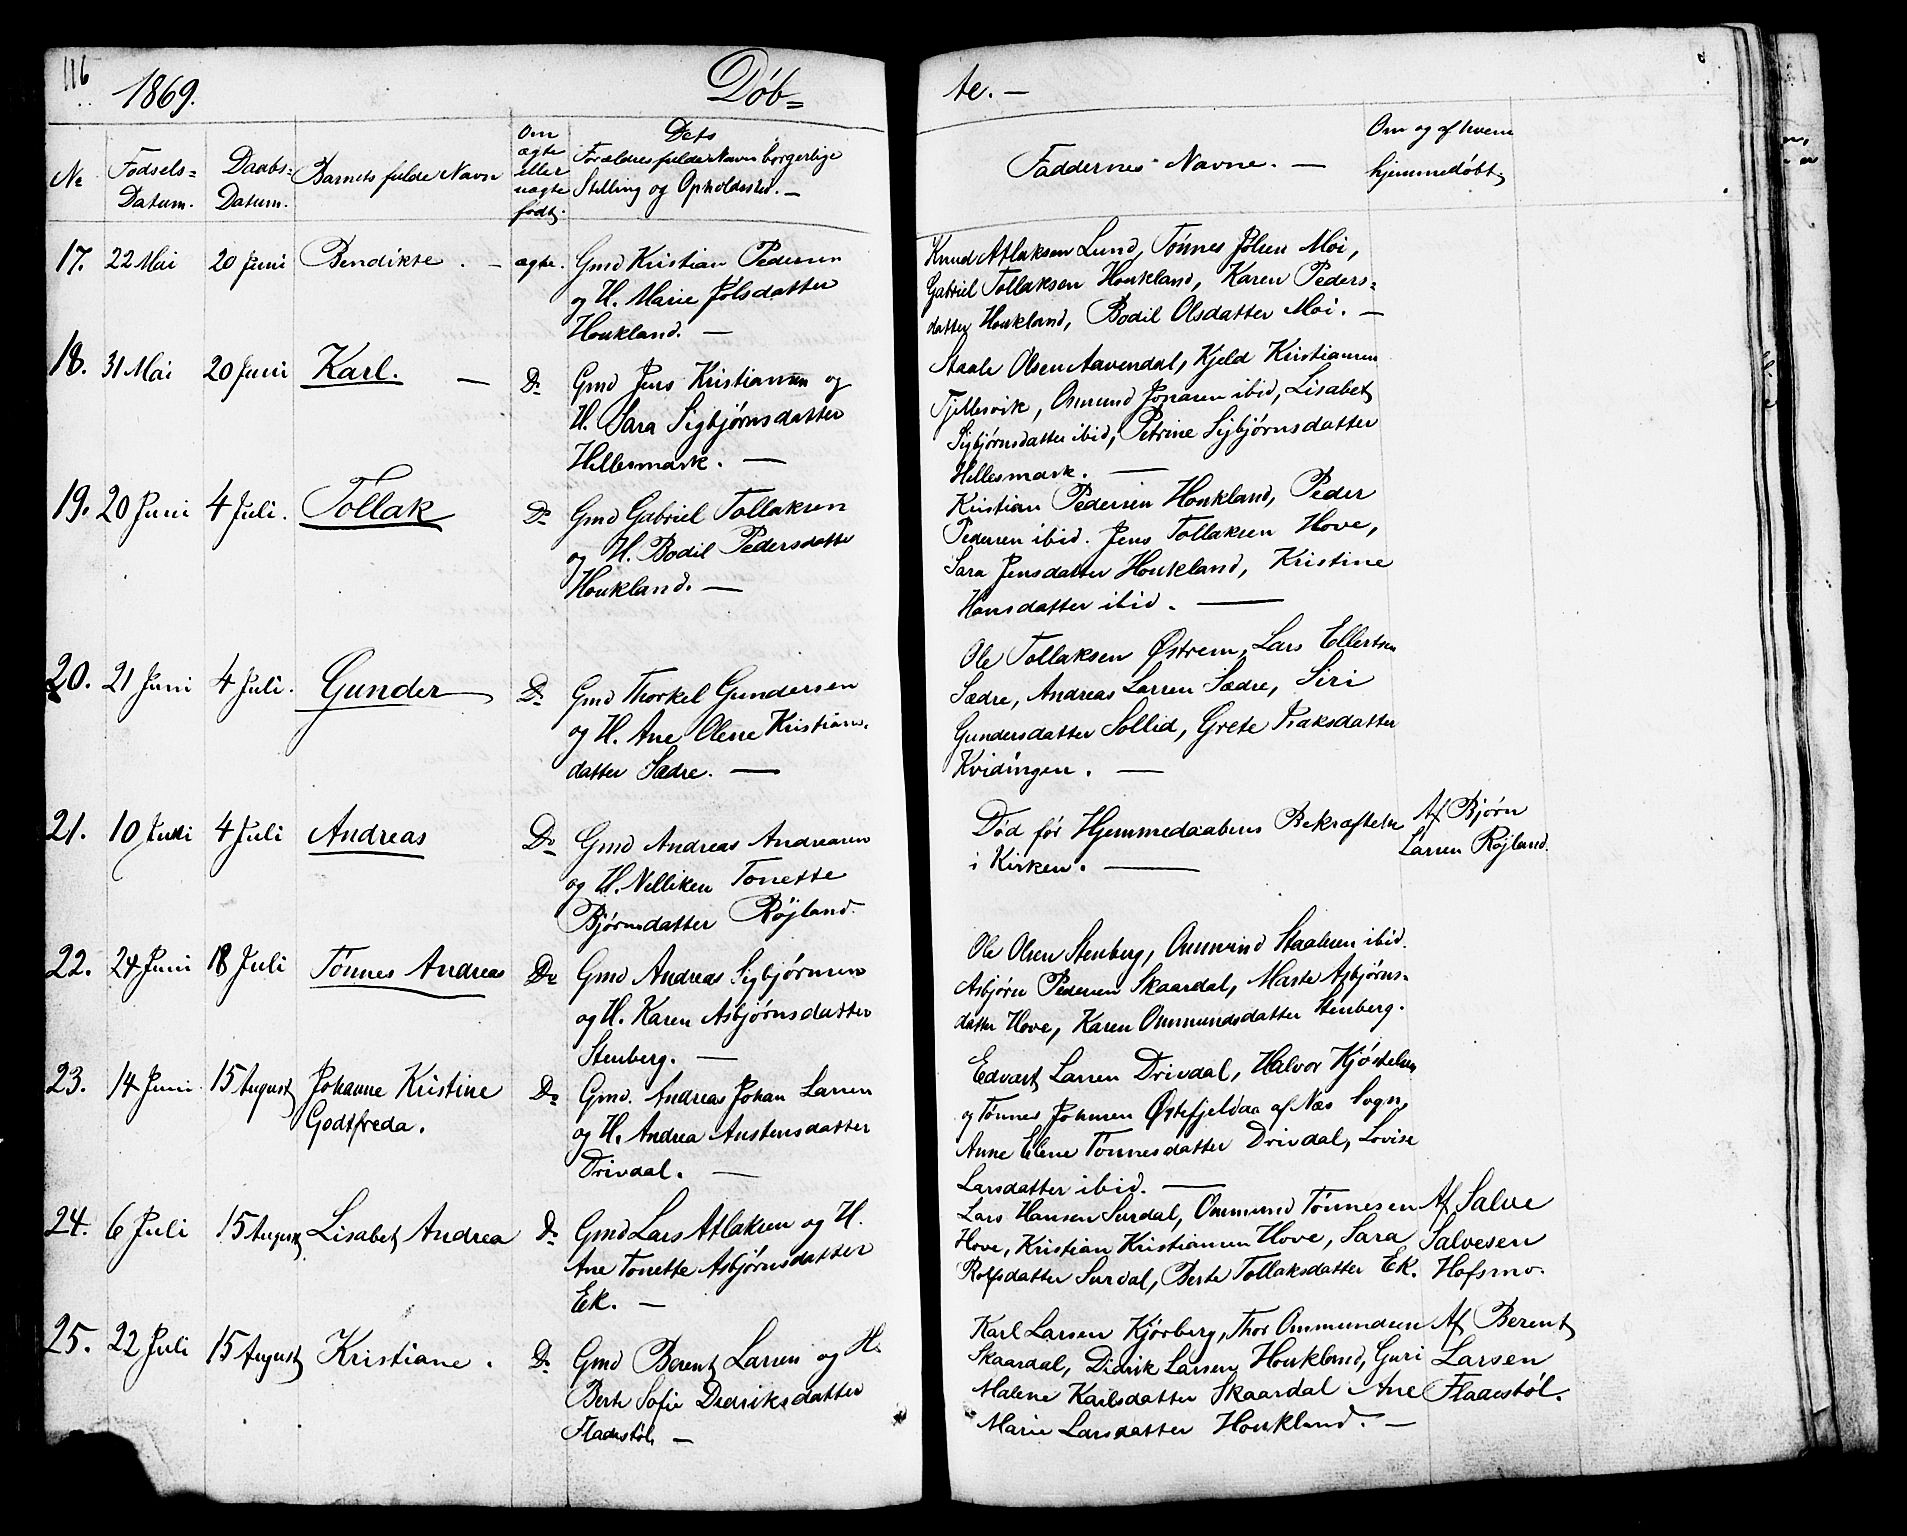 116
1869.
Døb=
te. —
No
Fødsels=
Datum.
Daabs=
Datum.
Barnets fulde Navn
Om
ægte
eller
uægte
født.
Dets
Forældres fulde Navn borgerlige
Stilling og Opholdssted. —
Faddernes Navne. —
Om og af hvem
hjemmedøbt.
17. 22 Mai 20 Juni Bendikte. — ægte. Gmd Kristian Pedersen
og H. Marie Jølsdatter
Houkland. —
Knud Atlaksen Lund, Tønnes Jølsen Moi,
Gabriel Tollaksen Houkland, Karen Peders=
datter Houkland, Bodil Olsdatter Moi. —
18. 31 Mai 20 Juni Karl. — Do Gmd Jens Kristiansen og
H. Sara Sigbjørnsdatter
Hellesmark. —
Staale Olsen Aavendal, Kjeld Kristiansen
Tjellesvik, Osmund Jonasen ibid, Lisabet
Sigbjørnsdatter ibid, Petrine Sigbjørnsdatter
Hellesmark. —
19. 20 Juni 4 Juli. Tollak Do Gmd Gabriel Tollaksen
og H. Bodil Pedersdatter
Houkland. —
Kristian Pedersen Houkland, Peder
Pedersen ibid. Jens Tollaksen Hove,
Sara Jensdatter Houkland, Kristine
Hansdatter ibid. —
20. 21 Juni 4 Juli. Gunder Do Gmd Thorkel Gundersen
og H. Ane Olene Kristians-
datter Sædre. —
Ole Tollaksen Østrem, Lars Ellertsen
Sædre, Andreas Larsen Sædre, Siri
Gundersdatter Sollid, Grete Isaksdatter
Kvidingen. —
21. 10 Juni 4 Juli Andreas Do Gmd Andreas Andreasen
og H. Nilliken Tonette
Bjørnsdatter Røjland.
Død før Hjemmedaabens Bekræftelse
i Kirken. —
Af Bjørn
Larsen Røjland.
22. 24 Juni 18 Juli Tønnes Andreas Do Gmd Andreas Sigbjørnsen
og H. Karen Asbjørnsdatter
Stenberg. —
Ole Olsen Stenberg, Ommund Staalesen ibid.
Asbjørn Pedersen Skaardal, Marte Asbjørns=
datter Hove, Karen Ommundsdatter Stenberg.
23. 14 Juni 15 August Johanne Kristine
Godtfreda. Do Gmd. Andreas Johan Larsen
og H. Andrea Austensdatter
Drivdal. —
Edvart Larsen Drivdal, Halvor Kjøstelsen
og Tønnes Johnsen Østefjeldaa af Næs Sogn,
Anne Elene Tønnesdatter Drivdal, Lovise
Larsdatter ibid. —
24. 6 Juli 15 August Lisabet Andrea Do Gmd Lars Atlaksen og H.
Ane Tonette Asbjørnsdatter
Ek. —
Lars Hansen Surdal, Ommund Tønnesen
Hove, Kristian Kristiansen Hove, Sara
Rolfsdatter Surdal, Berte Tollaksdatter Ek.
Af Salve
Salvesen
Hofsmo.
25. 22 Juli 15 August Kristiane. Do Gmd Berent Larsen og H.
Berte Sofie Dedriksdatter
Fladestøl, —
Karl Larsen Kjørberg, Thor Ommundsen
Skaardal, Didrik Larsen Houkland, Guri
Malene Karlsdatter Skaardal Ane
Marie Larsdatter Houkland. —
Af Berent
Larsen
Fladestøl.